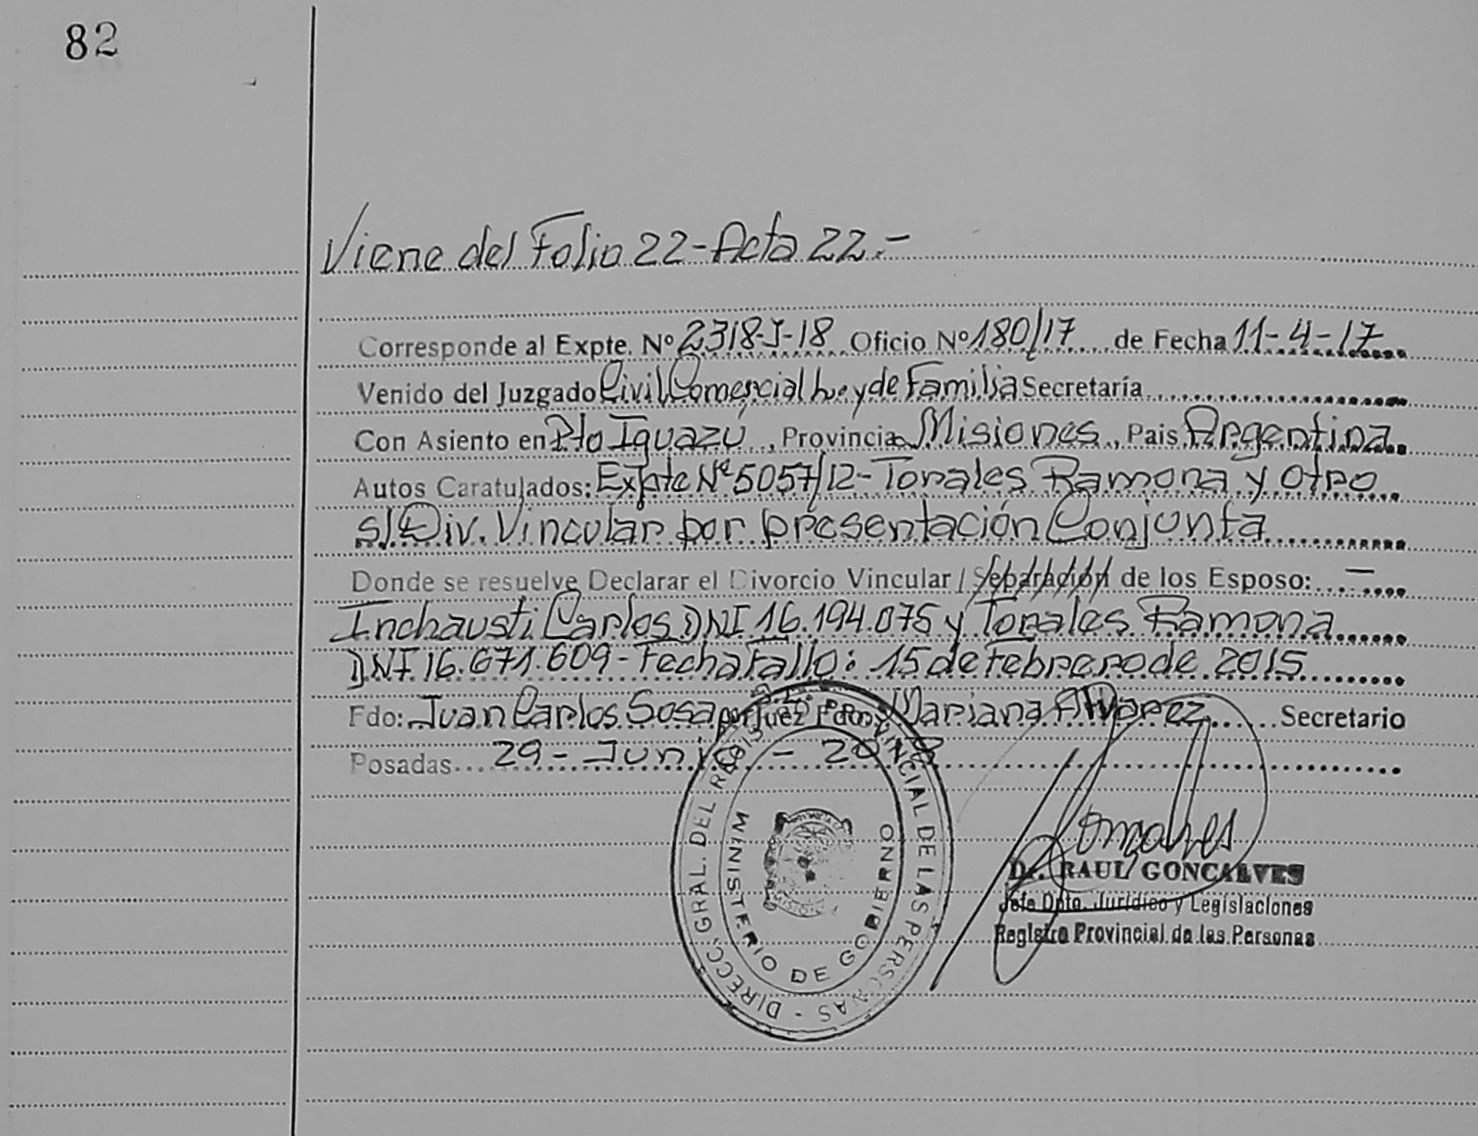 82
Viene del Folio 22-Acta 22.-
Corresponde al Expte. Nº 2318-J-18 Oficio Nº 180/17 de Fecha 11-4-17
Venido del Juzgado Civil Comercial L. y de Familia Secretaría
Con Asiento en Pto Iguazú, Provincia Misiones, Pais Argentina.
Autos Caratulados: Expte Nº 5057/12-Torales Ramona y Otro
s/Div. Vincular por presentación Conjunta
Donde se resuelve Declarar el Divorcio Vincular / Separación de los Esposo: -
Inchausti Carlos DNI 16.194.075 y Torales Ramona
DNI 16.671.609-Fecha Fallo: 15 de Febrero de 2015
Fdo: Juan Carlos Sosa por Juez Fdo: Mariana Alvarez Secretario
Posadas 29-Junio-2018
DIRECC. GRAL. DEL REGISTRO PROVINCIAL DE LAS PERSONAS -
MINISTERIO DE GOBIERNO
Dr. RAUL GONCALVES
Jefe Dpto. Jurídico y Legislaciones
Registro Provincial de las Personas